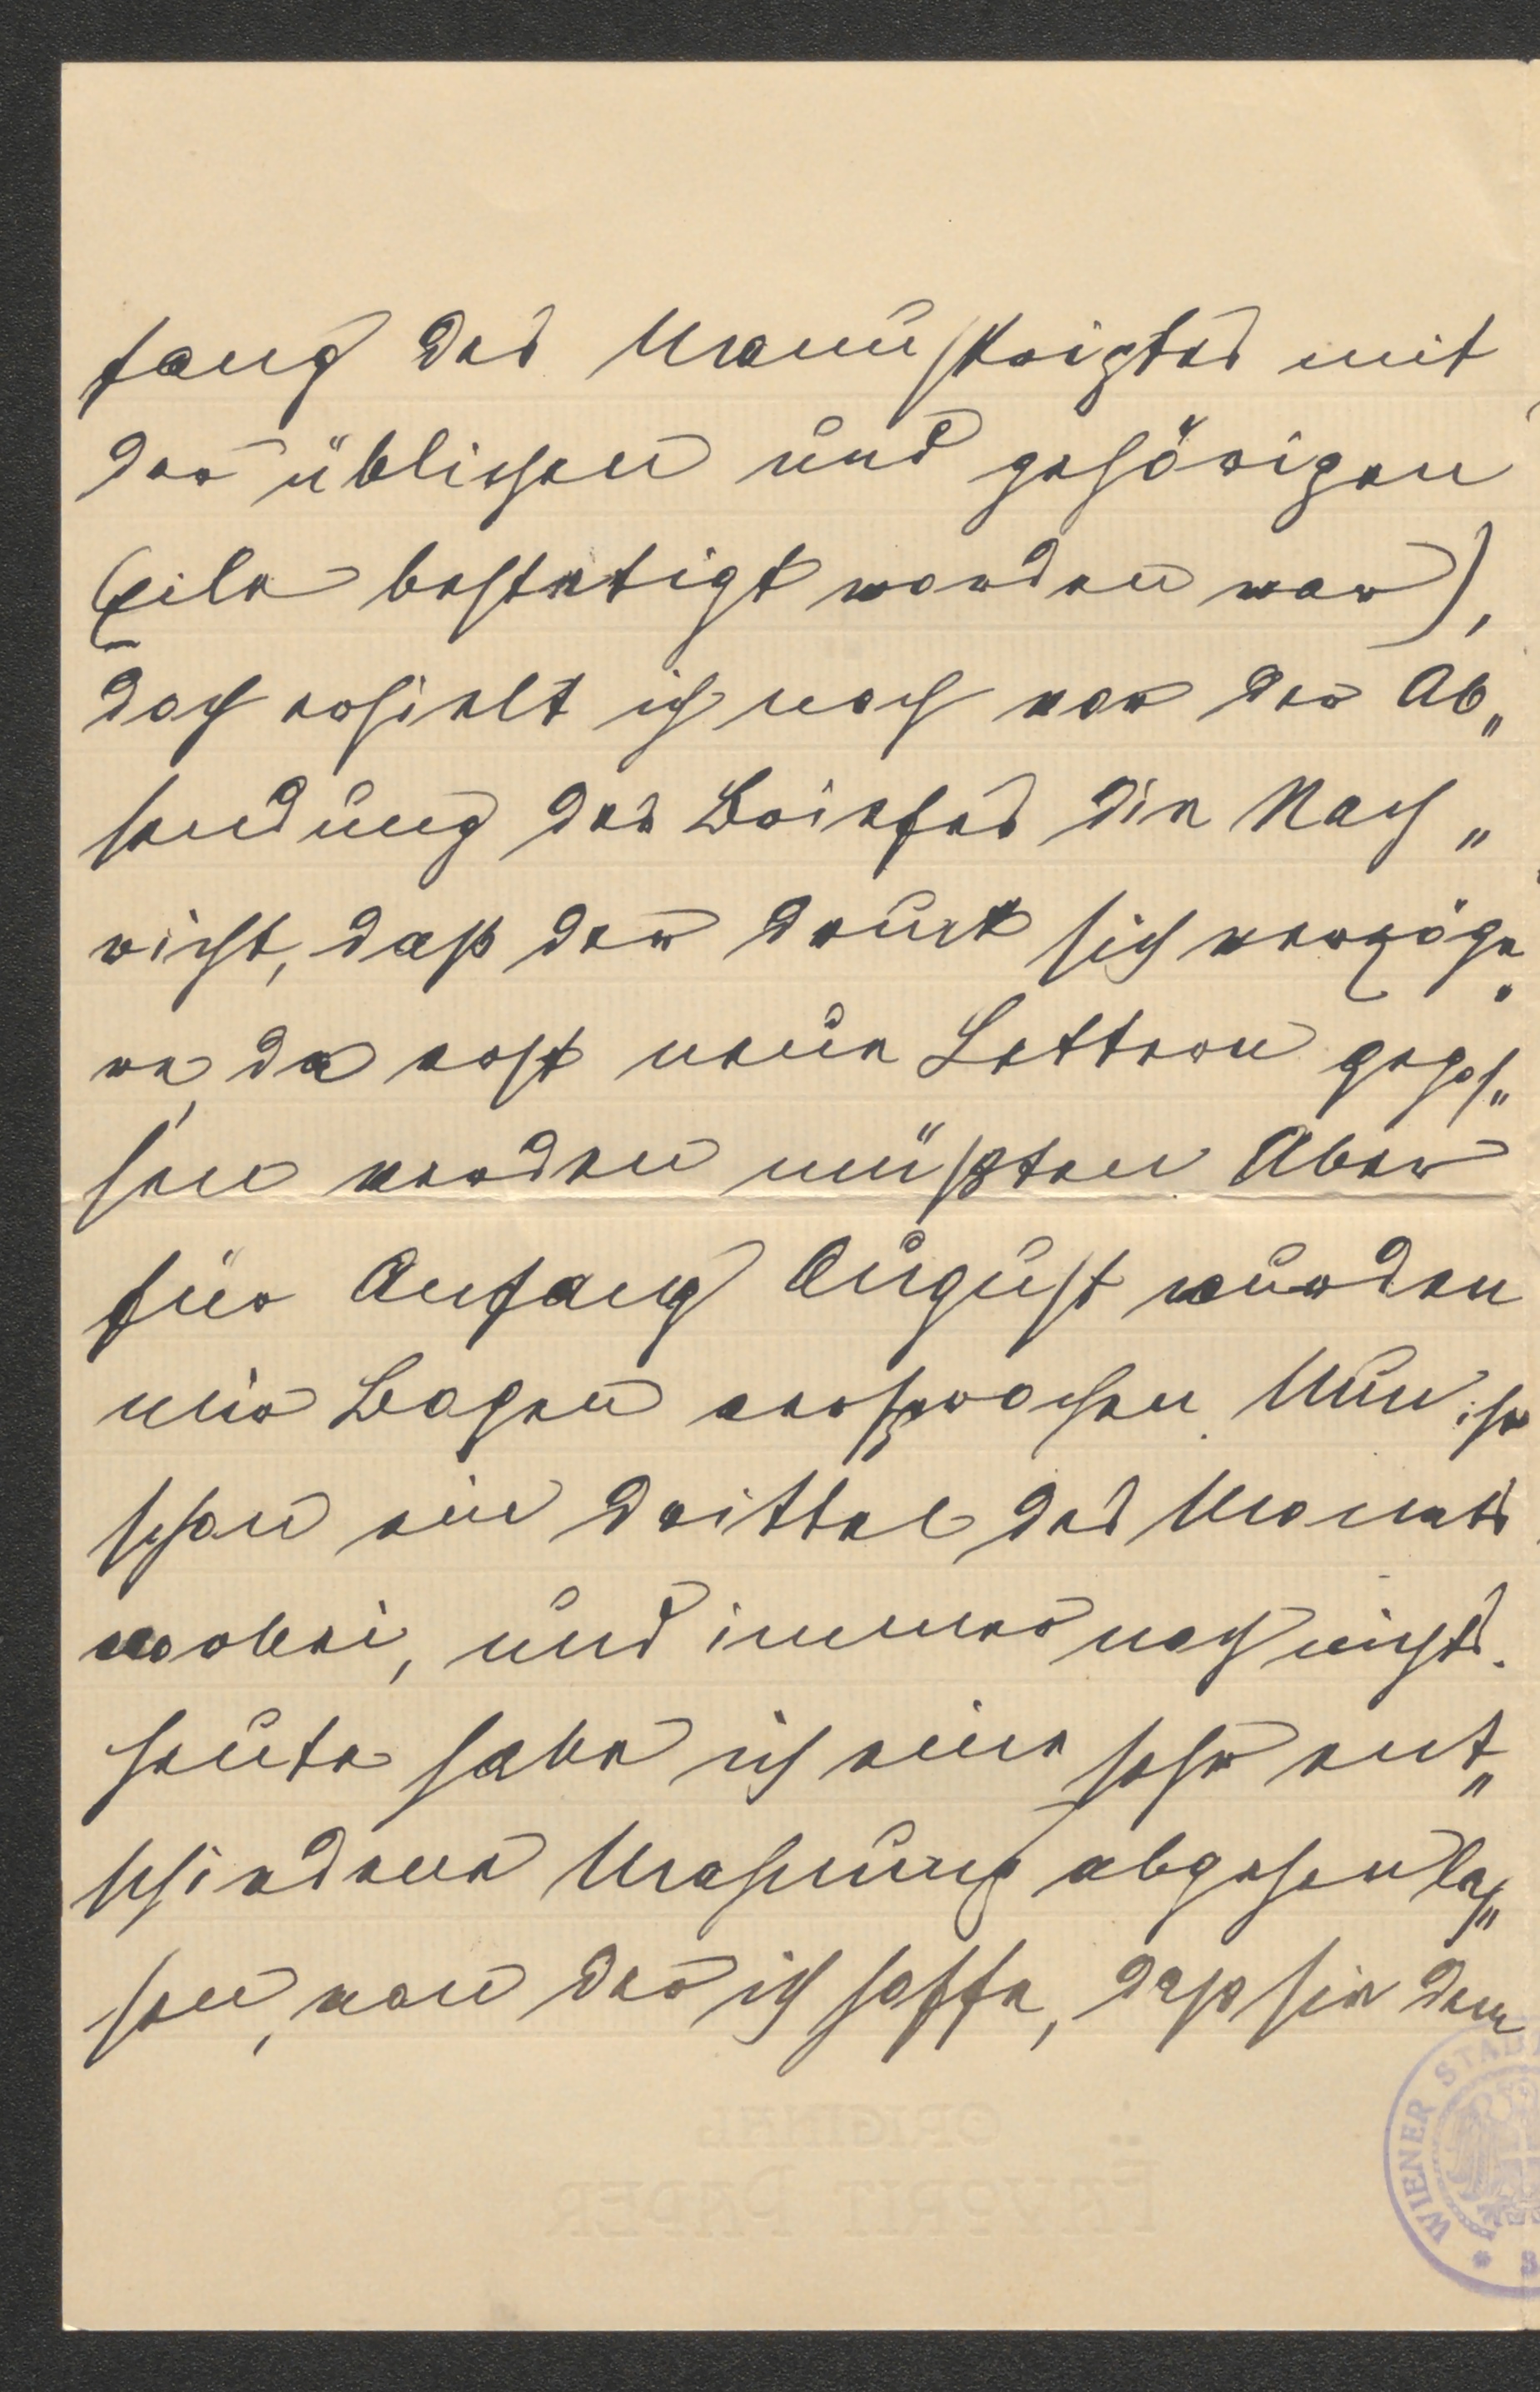 fang des Manuskriptes mit
der üblichen und gehörigen
Eile bestätigt worden war),
doch erhielt ich noch vor der Ab„
sendung des Briefes die Nach„
richt, daß der Druck sich verzöge„
re, da erst neue Lettern gegos„
sen werden müßten. Aber
für Anfang August wurden
mir Bogen versprochen. Nun ist
schon ein Drittel des Monats
vorbei, und immer noch nichts.
Heute habe ich eine sehr ent„
schiedene Mahnung abgehen las„
sen, von der ich hoffe, daß sie dem
ORIGINAL
WIENER STAD